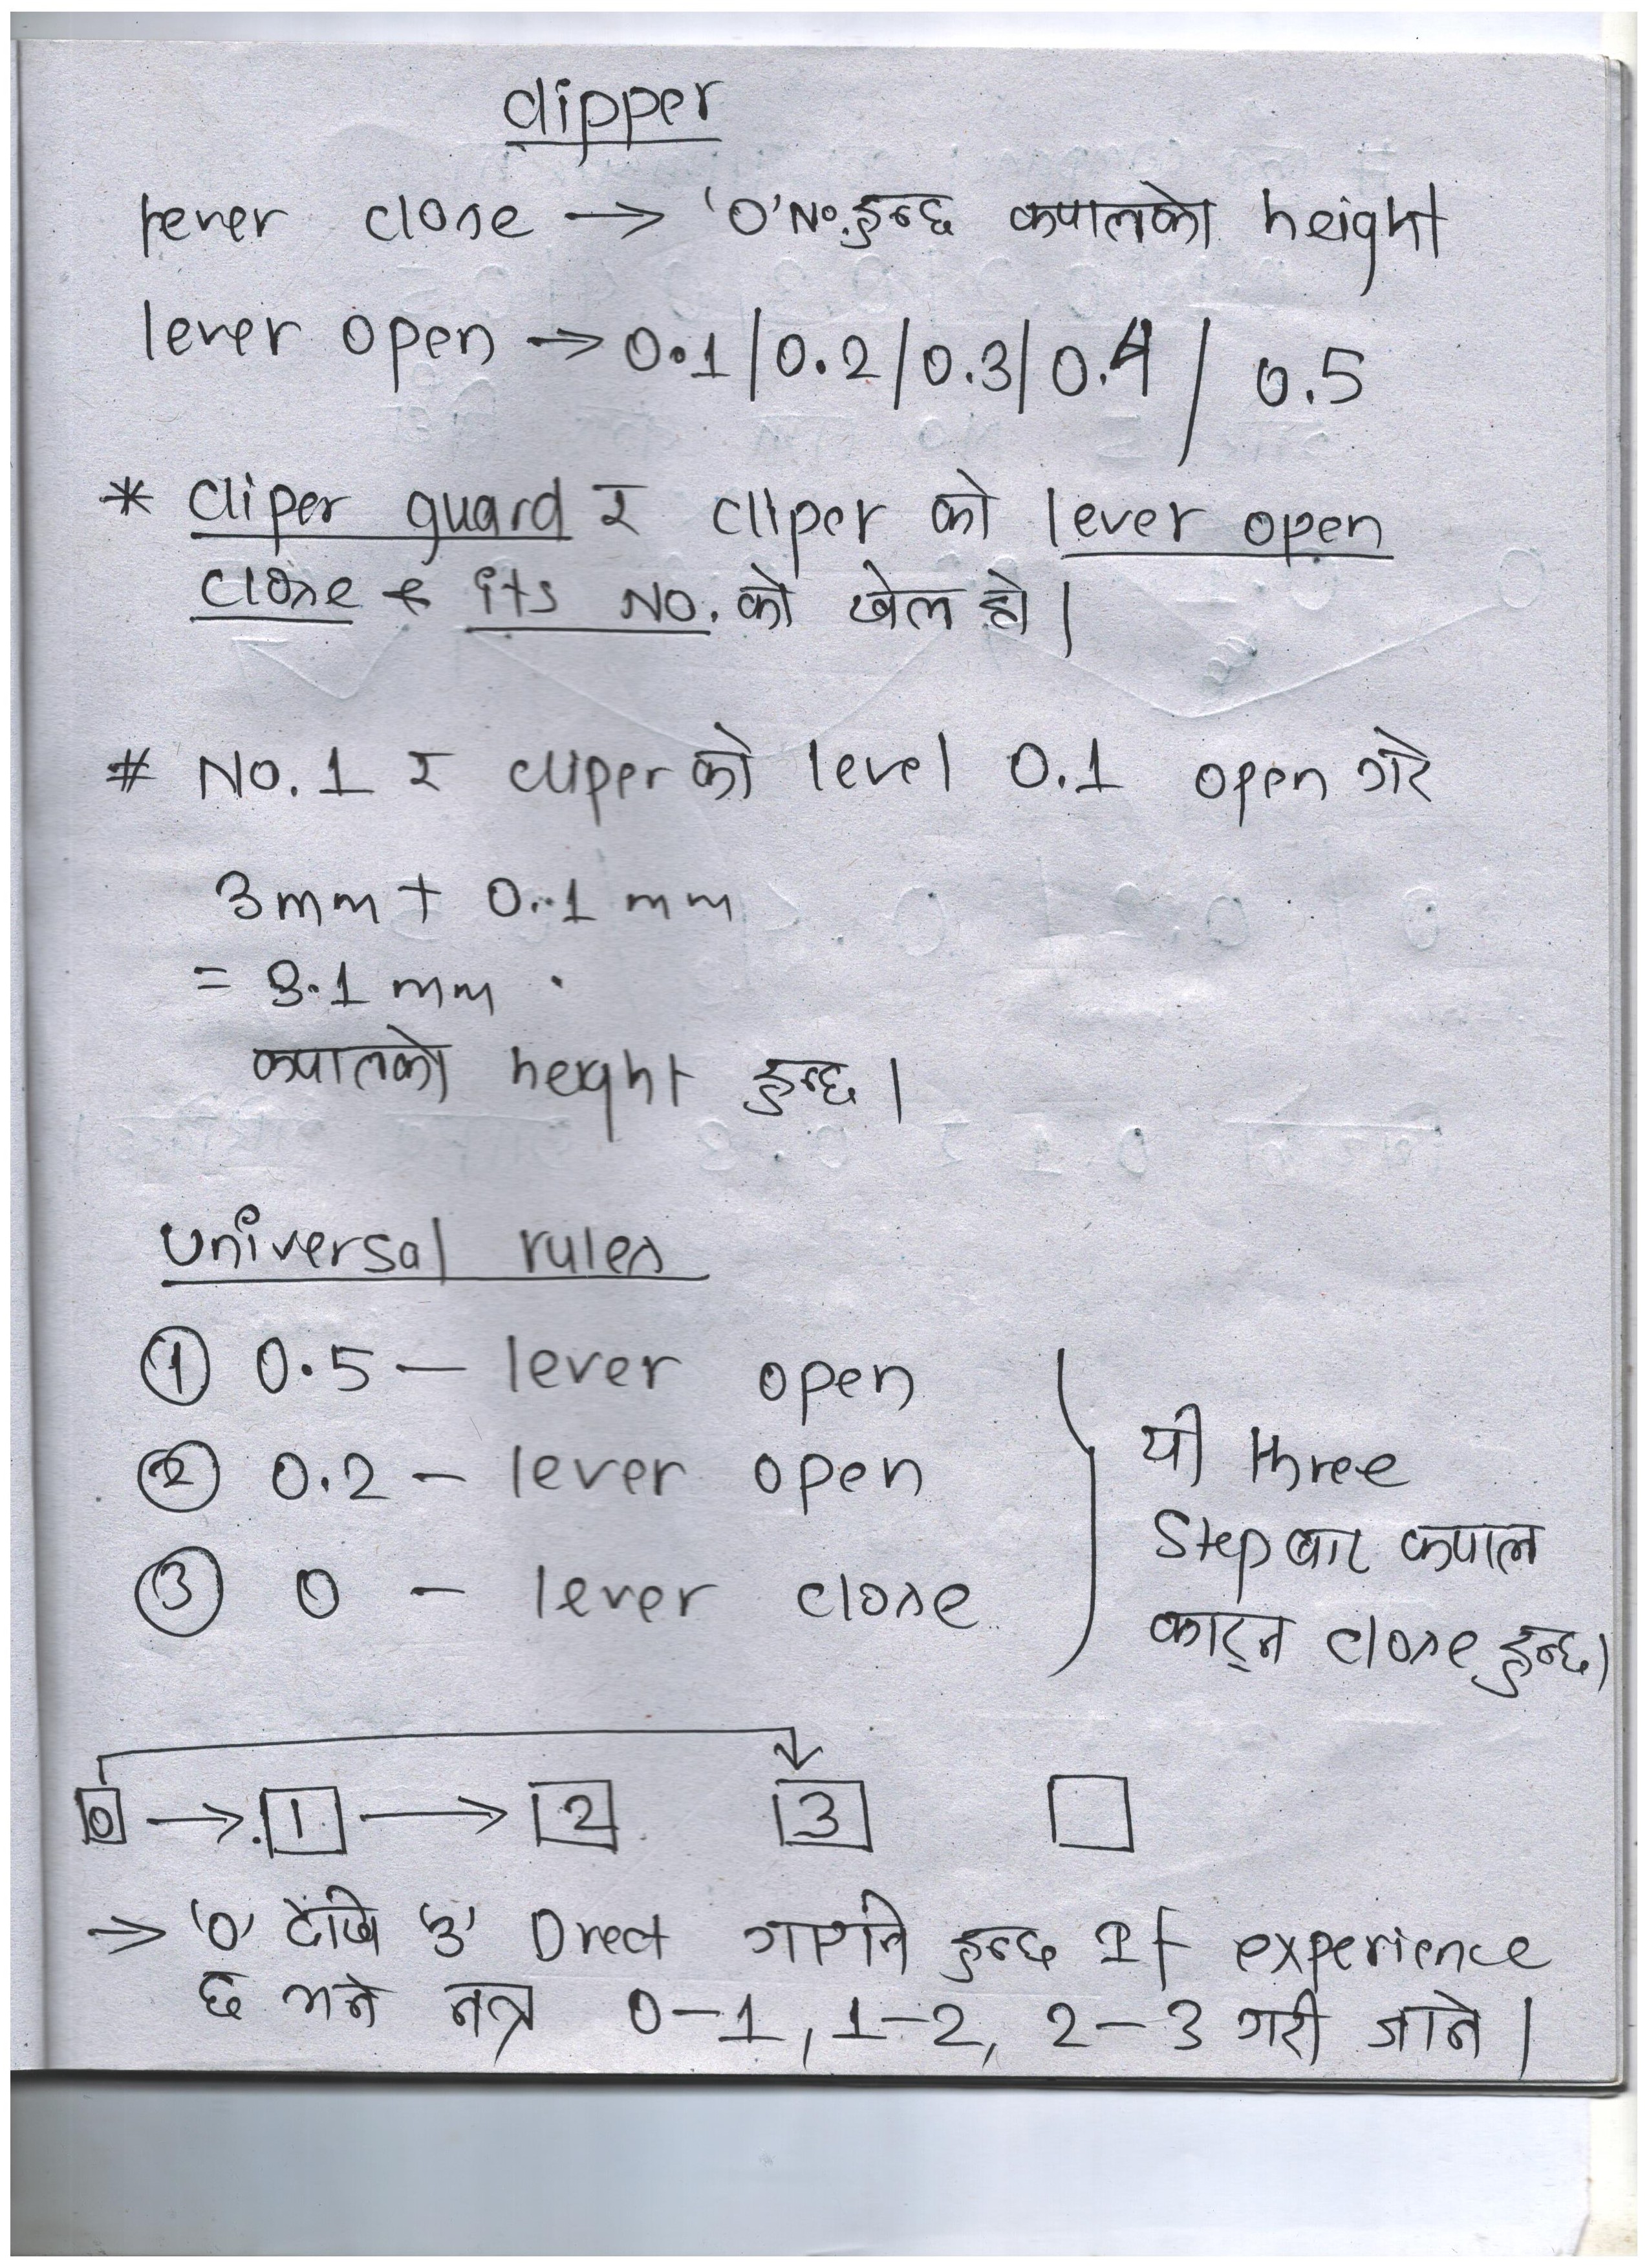 clipper
lever close → '0' No. हुन्छ कपालको height
lever open → 0.1 / 0.2 / 0.3 / 0.4 / 0.5
* cliper guard र cliper को lever open
close & its No. को खेल हो।
# No. 1 र cliper को level 0.1 open गरे
3mm + 0.1 mm
= 3.1 mm
कपालको height हुन्छ।
universal rules
① 0.5 – lever open
② 0.2 – lever open
③ 0 – lever close
यी three
step बाट कपाल
काट्न close हुन्छ।
0 → 1 → 2 3
→ '0' देखि '3' Drect गएनि हुन्छ If experience
छ भने नत्र 0-1, 1-2, 2-3 गरी जाने।